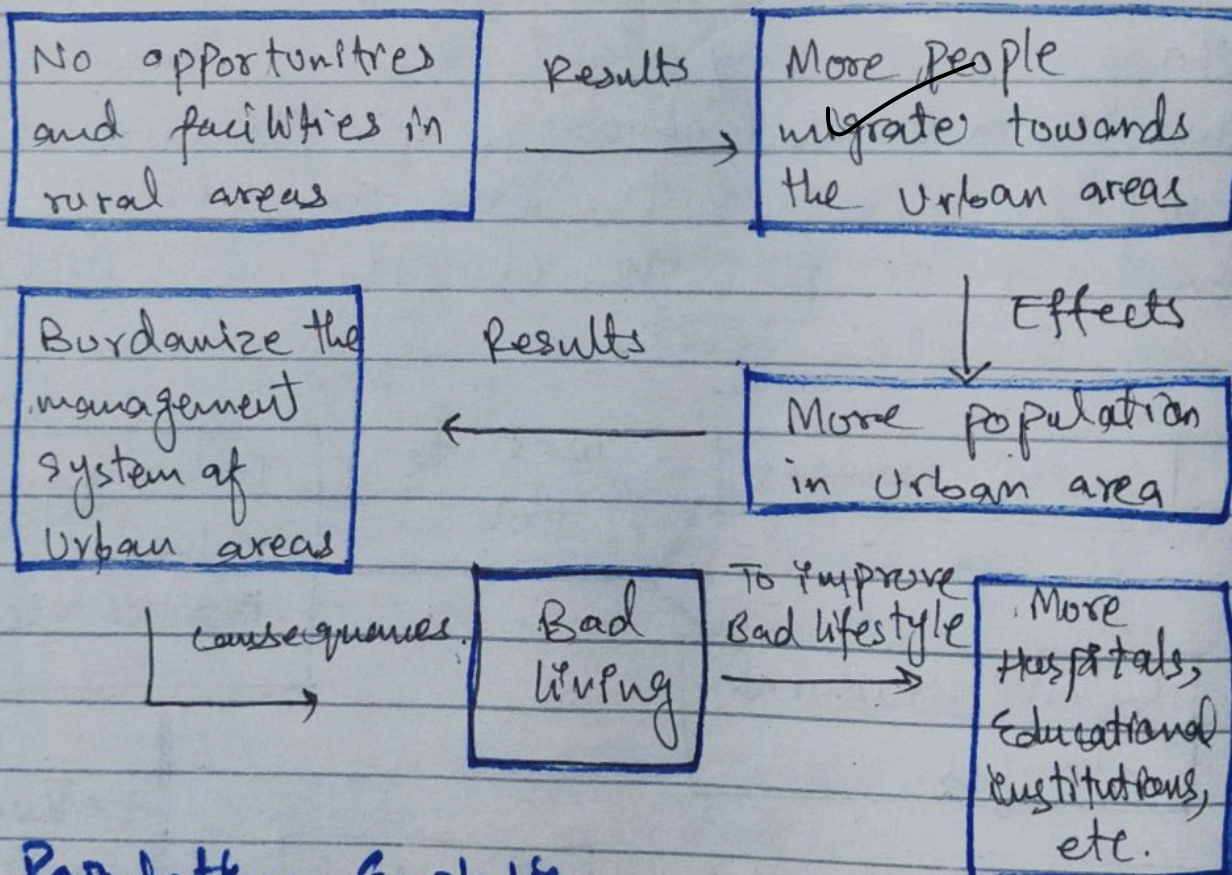 No opportunitres
and facilities in
rural areas
Results
More people
migrate towards
the Urban areas
Effects
More population
in Urban area
Results
Burdanize the
management
system of
Urban areas
consequences.
Bad
living
To improve
Bad lifestyle
More
Hospitals,
Educational
institutions,
etc.